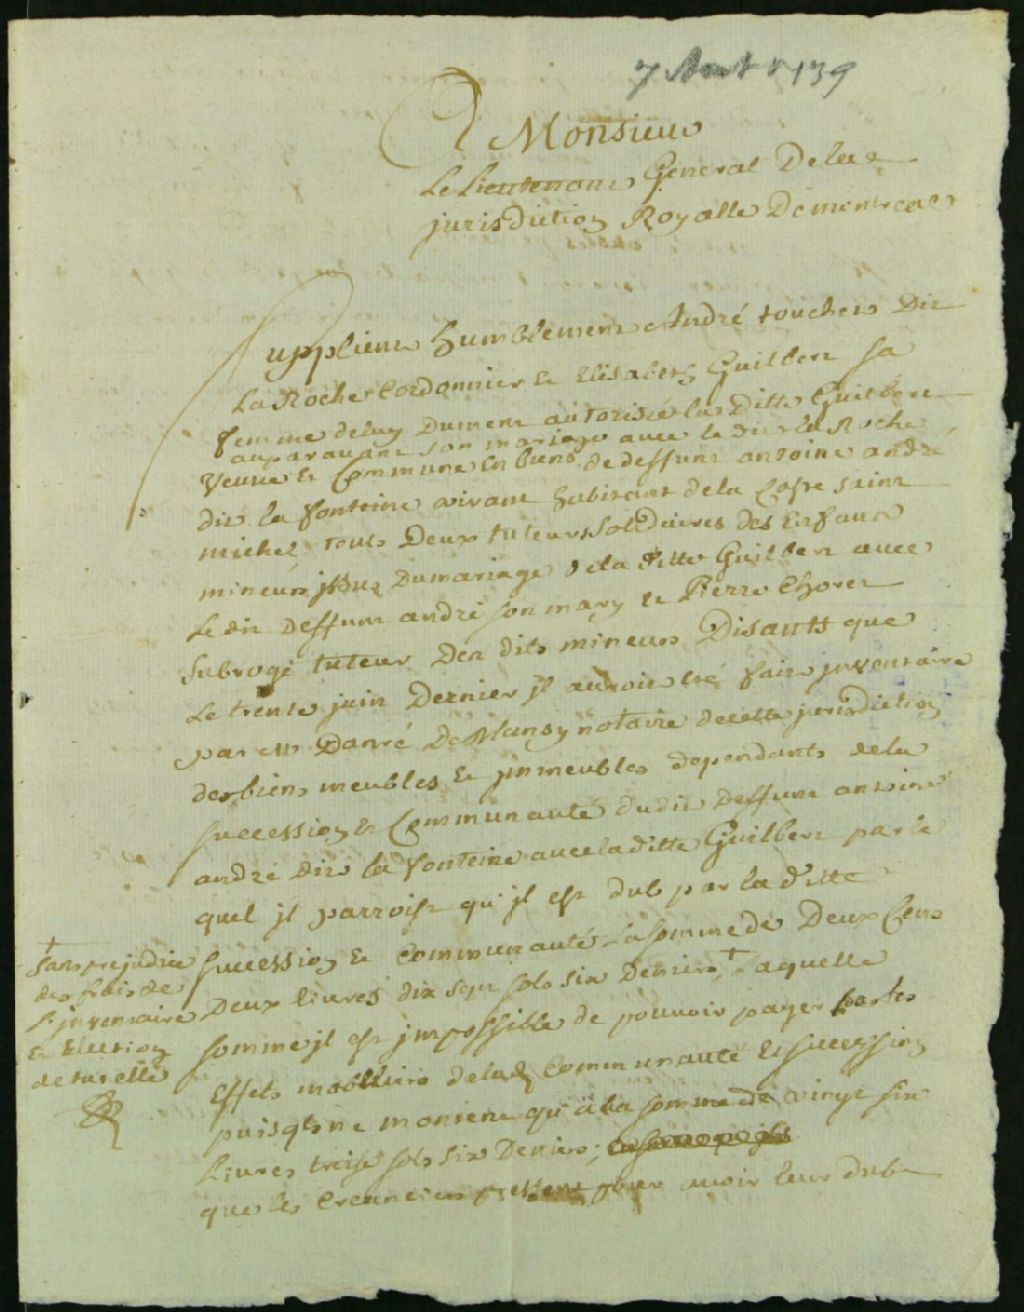 7 Aout 1739
A Monsieur
Le Lieutenant General Dela
jurisdiction Royalle De montreal
Supplient humblement André touchers Dit
La Roche Cordonnier et Elisabeth Guilbert sa
femme deluy Dument autorisée la Ditte Guilbert
auparavant son mariage avec le dit la Roche
Veuve et Commune en biens de deffunt antoine andré
dit la fonteine vivant habitant dela Coste saint
michel, tous Deux tuteurs solidaires des Enfans
mineurs jssus Dumariage dela ditte Guilbert avec
Le dit Deffunt andré son mary et Pierre Choret
subrogé tuteur Des dits mineurs Disants que
Le trente juin Dernier jl auroit eté fait jnventaire
par Me Danré De Blanzy notaire decette jurisdiction
des biens meubles et jmmeubles dependants dela
succession et Communauté dudit deffunt antoine
andré dit la fonteine avec la ditte Guilbert par le
quel jl parroist qu'jl est dub par la ditte
succession et Communauté La somme de Deux Cens
Deux livres dix sept sols six Deniers,+ Laquelle
somme jl est jmpossible de pouvoir payer par les
Effets mobiliers delad. Communauté et succession
puisqls ne montent qu'à la somme de vingt six
Livres treise sols six Deniers;
que les Creanciers pressent pour avoir leur dub
+
sans prejudice
des frais de
l'jnventaire
et Election
de tutelle